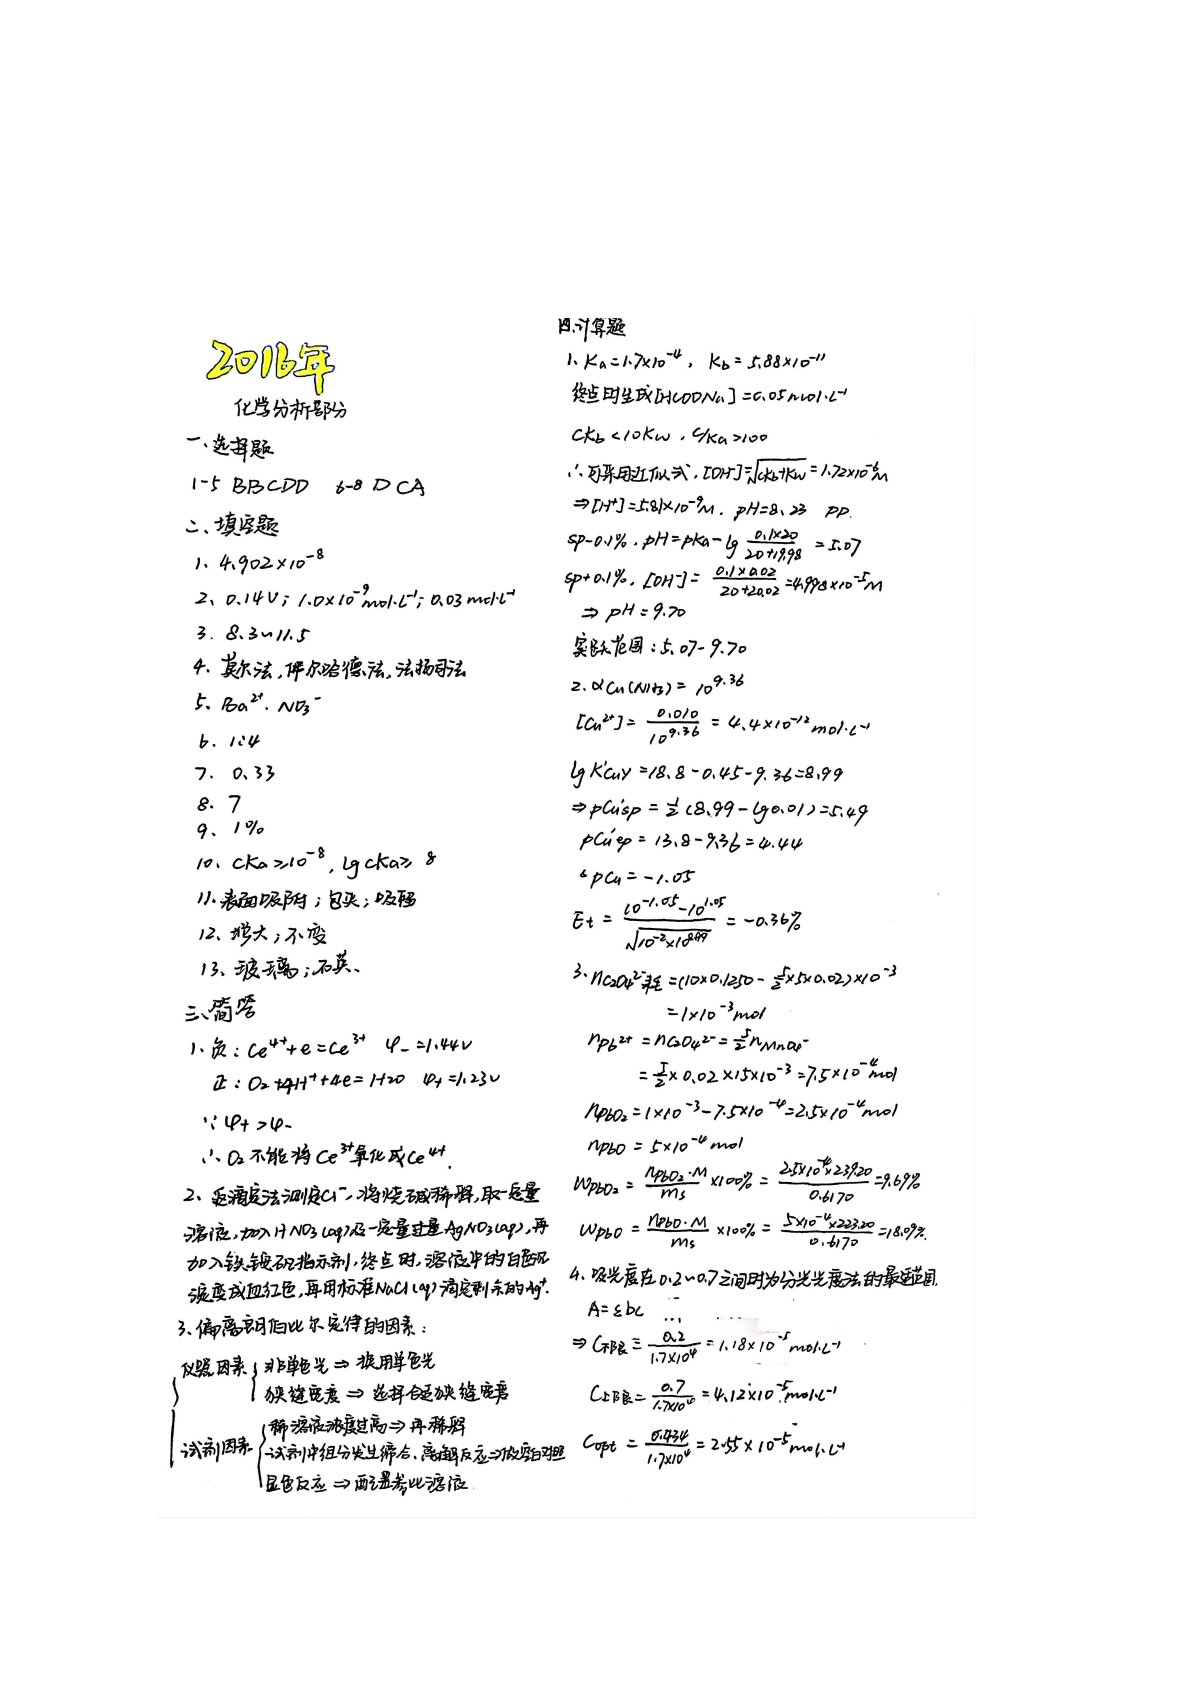 2016年
化学分析部分
一、选择题
1-5 BBCDD 6-8 DCA
二、填空题
1、4.902×10⁻⁸
2、0.14V；1.0×10⁻⁹mol·L⁻¹；0.03mol·L⁻¹
3. 8.3~11.5
4. 莫尔法,佛尔哈德法,法扬司法
5、Ba²⁺. NO₃⁻
6. 1:4
7. 0.33
8. 7
9. 1%
10、CKa≥10⁻⁸, lgcKa≥8
11.表面吸附；包夹；吸留
12、增大；不变
13、玻璃；石英、
三、简答
1、负：Ce⁴⁺+e=Ce³⁺ φ₋=1.44V
正：O₂+4H⁺+4e=H₂O φ₊=1.23V
∵φ₊>φ₋
∴O₂不能将Ce³⁺氧化成Ce⁴⁺.
2、返滴定法测定Cl⁻,将烧碱稀释,取一定量
溶液,加入HNO₃(aq)及一定量过量AgNO₃(aq),再
加入铁铵矾指示剂,终点时,溶液中的白色沉
淀变成血红色,再用标准NaCl(aq)滴定剩余的Ag⁺.
3、偏离朗伯比尔定律的因素：
仪器因素 非单色光⇒换用单色光
狭缝宽度⇒选择合适狭缝宽度
试剂因素 稀溶液浓度过高⇒再稀释
试剂中组分发生缔合、离解反应⇒做空白对照
显色反应⇒配置参比溶液
四、计算题
1、Ka=1.7×10⁻⁴, Kb=5.88×10⁻¹¹
终点时生成[HCOONa]=0.05mol·L⁻¹
CKb<10Kw, C/Ka>100
∴可采用近似式,[OH⁻]=√(cKb+Kw)=1.72×10⁻⁶M
⇒[H⁺]=5.81×10⁻⁹M. pH=8.23 PP.
sp-0.1%. pH=pKa-lg (0.1×20)/(20+19.98)=5.07
sp+0.1%. [OH⁻]=(0.1×0.02)/(20+20.02)=4.998×10⁻⁵M
⇒pH=9.70
突跃范围：5.07-9.70
2. αCu(NH₃)=10⁹·³⁶
[Cu²⁺]=0.010/10⁹·³⁶=4.4×10⁻¹²mol·L⁻¹
lgK'CuY=18.8-0.45-9.36=8.99
⇒pCu'sp=½(8.99-lg0.01)=5.49
pCu'ep=13.8-9.36=4.44
△pCu=-1.05
Et=(10⁻¹·⁰⁵-10¹·⁰⁵)/√(10⁻²×10⁸·⁹⁹)=-0.36%
3、nC₂O₄²⁻耗=(10×0.1250-5/2×5×0.02)×10⁻³
=1×10⁻³mol
nPb²⁺=nC₂O₄²⁻=5/2nMnO₄⁻
=5/2×0.02×15×10⁻³=7.5×10⁻⁴mol
nPbO₂=1×10⁻³-7.5×10⁻⁴=2.5×10⁻⁴mol
nPbO=5×10⁻⁴mol
WPbO₂=(nPbO₂·M)/ms×100%=(2.5×10⁻⁴×239.20)/0.6170=9.69%
WPbO=(nPbO·M)/ms×100%=(5×10⁻⁴×223.20)/0.6170=18.09%.
4、吸光度在0.2~0.7之间时为分光光度法的最适范围.
A=εbc
⇒C下限=0.2/(1.7×10⁴)=1.18×10⁻⁵mol·L⁻¹
C上限=0.7/(1.7×10⁴)=4.12×10⁻⁵mol·L⁻¹
Copt=0.434/(1.7×10⁴)=2.55×10⁻⁵mol·L⁻¹